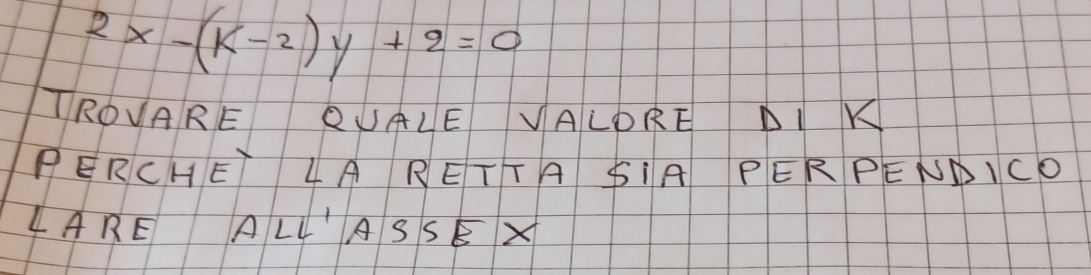 2x-(K-2)y+2=0
TROVARE QUALE VALORE DI K
PERCHE` LA RETTA SIA PERPENDICO
LARE ALL'ASSE X